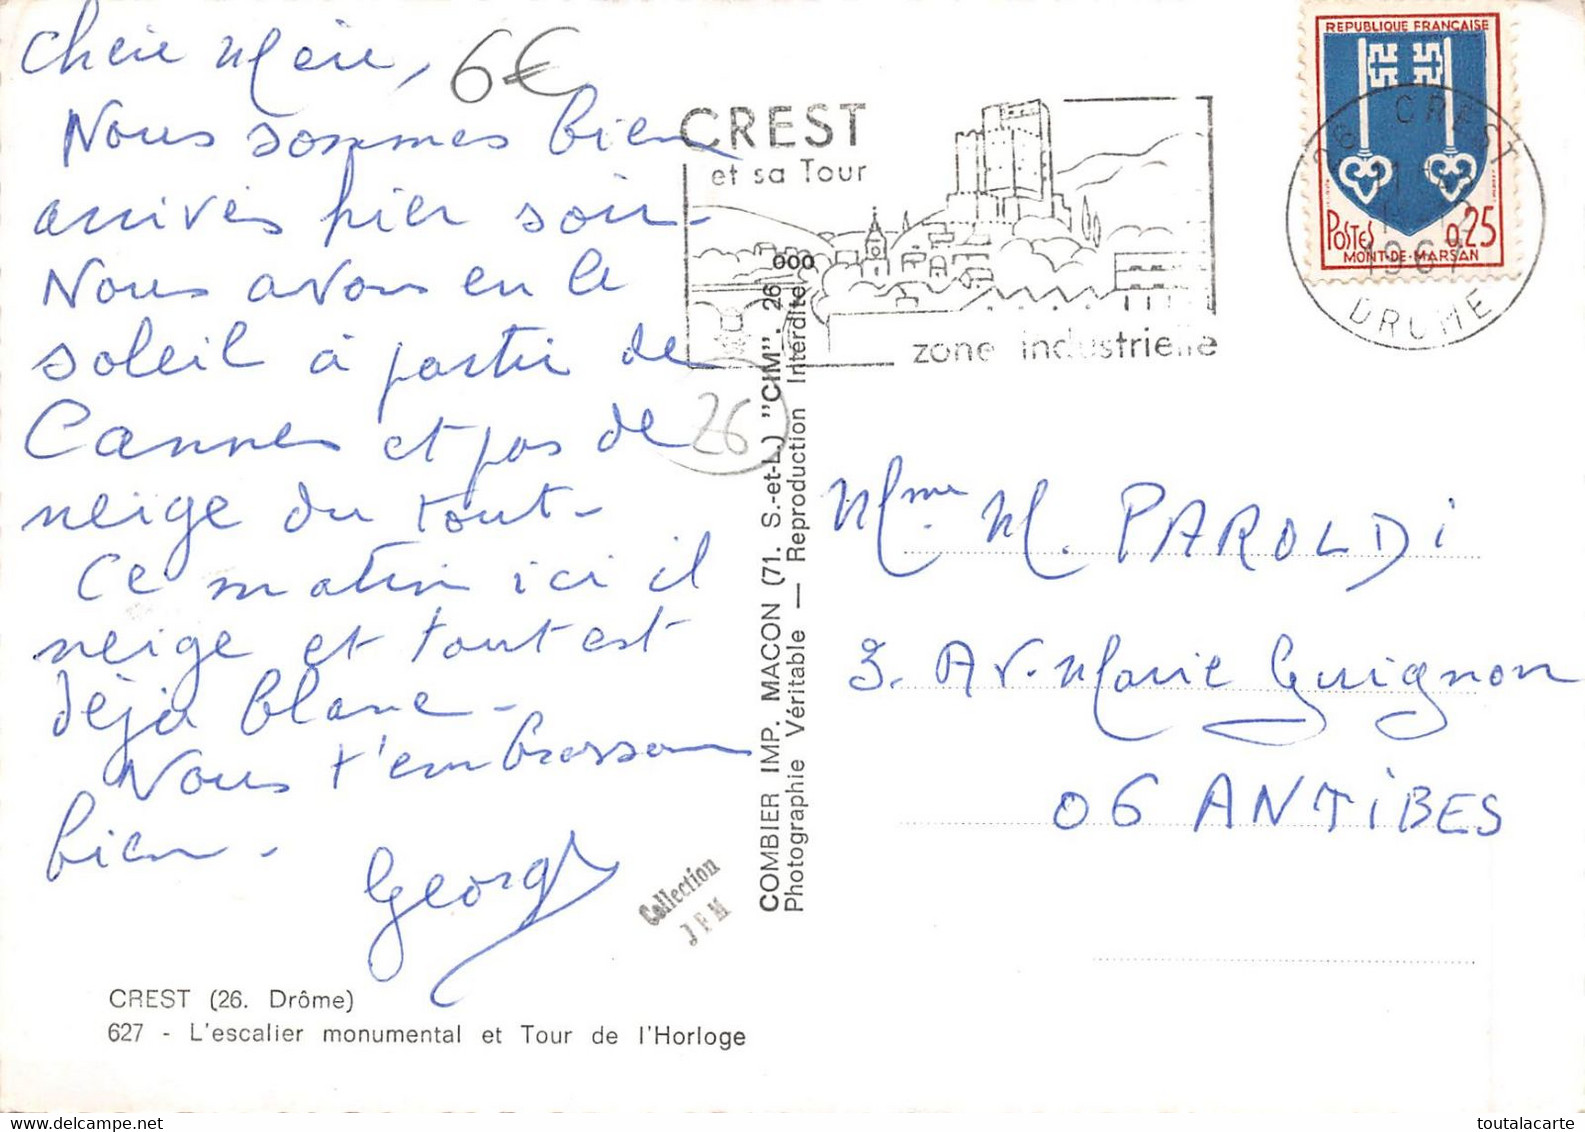 Chère Mère,
6€
Nous sommes bien
arrivés hier soir.
Nous avons eu le
soleil à partir de
Cannes et pas de
neige du tout.
Ce matin ici il
neige et tout est
déjà blanc.
Nous t'embrassons
bien.
Georges
26
CREST
et sa Tour
zone industrielle
REPUBLIQUE FRANÇAISE
POSTES 0,25
MONT-DE-MARSAN
CREST
1967
DROME
Mme M. PAROLDI
3. Av. Marie Guignon
06 ANTIBES
COMBIER IMP. MACON (71. S.-et-L.) "CIM". 26 000
Photographie Véritable — Reproduction Interdite
Collection
JFM
CREST (26. Drôme)
627 - L'escalier monumental et Tour de l'Horloge
www.toutalacarte.com